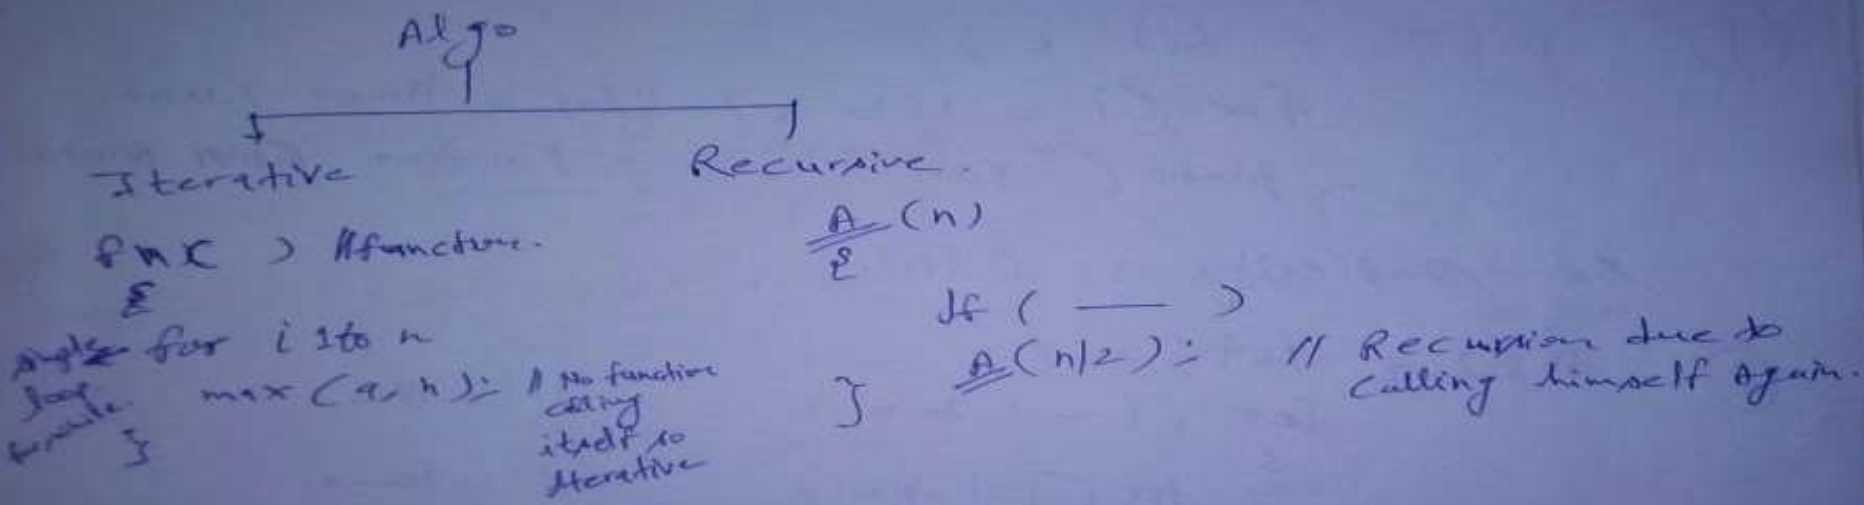 Algo
Iterative
fn( ) //function.
{
for i 1 to n
loop
max (a, n); // No function
calling
itself so
Iterative
}
Recursive.
A (n)
{
If ( — )
A (n/2); // Recursion due to
calling himself Again.
}